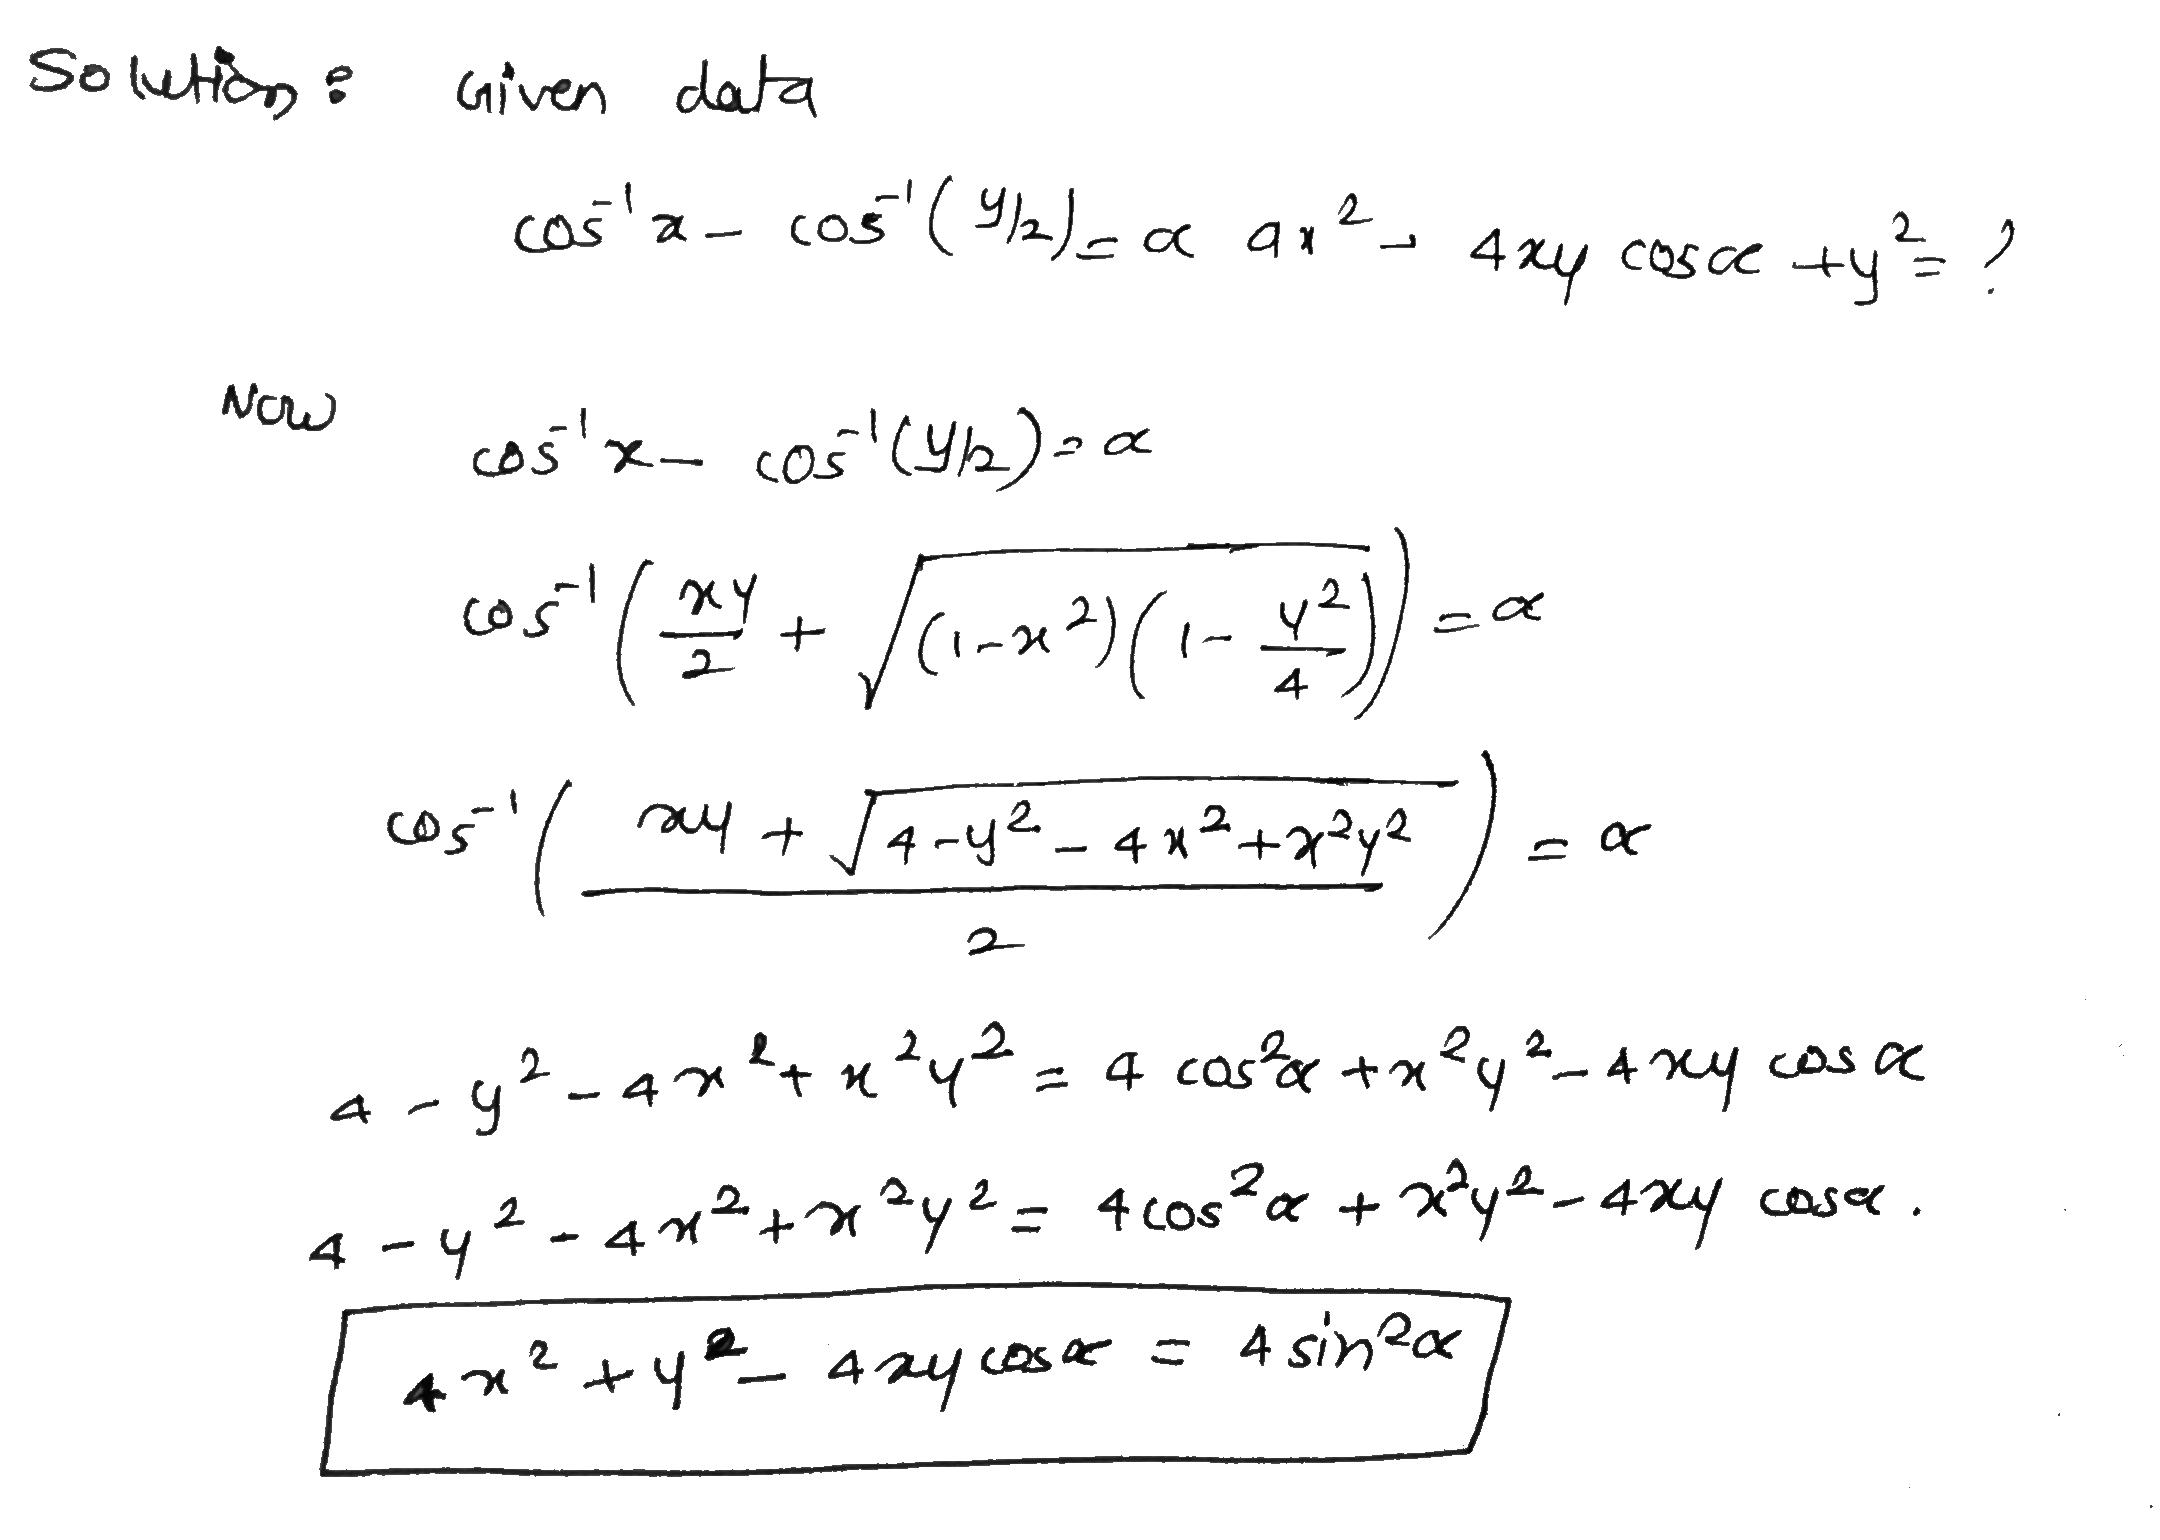 Solution: Given data
cos⁻¹x - cos⁻¹(y/2) = α 4x² - 4xy cosα + y² = ?
Now cos⁻¹x - cos⁻¹(y/2) = α
cos⁻¹(xy/2 + √((1-x²)(1 - y²/4))) = α
cos⁻¹((xy + √(4-y²-4x²+x²y²))/2) = α
4 - y² - 4x² + x²y² = 4 cos²α + x²y² - 4xy cos α
4 - y² - 4x² + x²y² = 4cos²α + x²y² - 4xy cosα.
4x² + y² - 4xy cosα = 4 sin²α